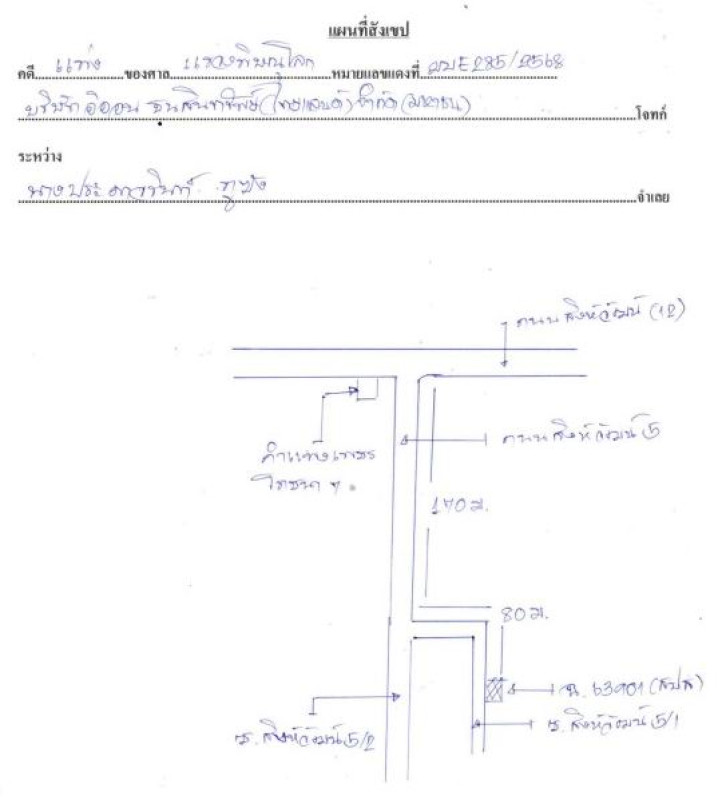 แผนที่สังเขป
คดี แพ่ง ของศาล แขวงพิษณุโลก หมายเลขแดงที่ ผบE285/2568
บริษัท อิออน ธนสินทรัพย์ (ไทยแลนด์) จำกัด (มหาชน) โจทก์
ระหว่าง
นางประ จำเลย
ถนน สิงห์วัฒน์ (12)
ถนน สิงห์วัฒน์ 5
กำแพงเพชร
170 ม.
80 ม.
ฉ. 63901 (สปส)
ซ. สิงห์วัฒน์ 5/1
ซ. สิงห์วัฒน์ 5/2